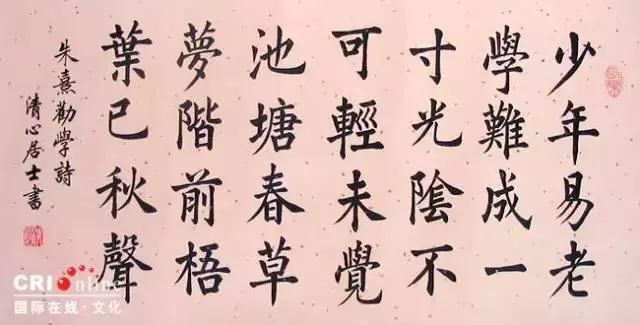 少年易老
學難成一
寸光陰不
可輕未覺
池塘春草
夢階前梧
葉已秋聲
朱熹勸學詩
清心居士書
CRIonline
国际在线·文化